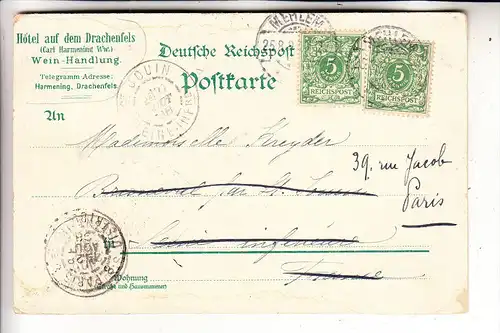 Hôtel auf dem Drachenfels
(Carl Harmening Ww.)
Wein-Handlung.
Telegramm Adresse:
Harmening, Drachenfels.
Deutsche Reichspost
Postkarte
MEHLEM
5
REICHSPOST
5
REICHSPOST
An
Mademoiselle Kreyder
39, rue Jacob
Paris
par St.
Seine Inférieure
France
PARIS
Wohnung
(Straße und Hausnummer)